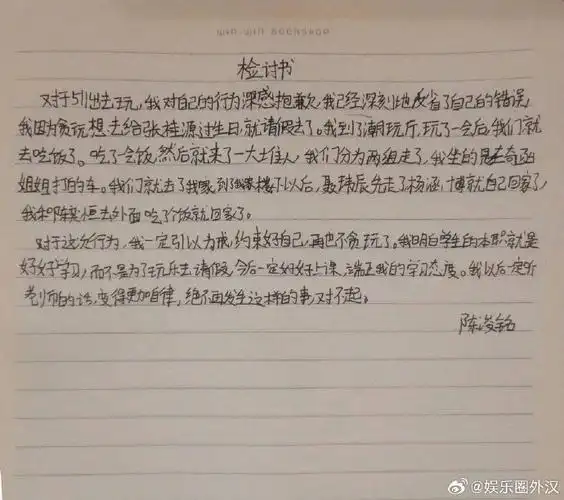 检讨书
对于5.1出去玩,我对自己的行为深感抱歉,我已经深刻地反省了自己的错误,
我因为贪玩想去给张桂源过生日,就请假去了。我到了潮玩厅,玩了一会后,我们就
去吃饭了。吃了一会饭,然后就来了一大堆人,我们分为两组走了,我坐的是左奇函
姐姐打的车。我们就去了我家,到我家楼下以后,聂玮辰先走了杨涵博就自己回家了,
我和陈奕恒去外面吃了个饭就回家了。
对于这次行为,我一定引以为戒,约束好自己,再也不贪玩了。我明白学生的本职就是
好好学习,而不是为了玩乐去请假,今后一定好好上课,端正我的学习态度。我以后一定听
老师的话,变得更加自律,绝不再发生这样的事,对不起。
陈浚铭
@娱乐圈外汉